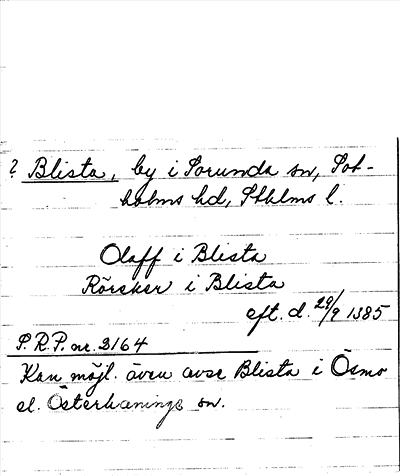 ? Blista, by i Sorunda sn, Sot-
holms hd, Sthlms l.
Olaff i Blista
Rörsker i Blista
eft. d. 29/9 1385
S.R.P. nr. 3164
Kan möjl. även avse Blista i Ösmo
el. Österhaninge sn.